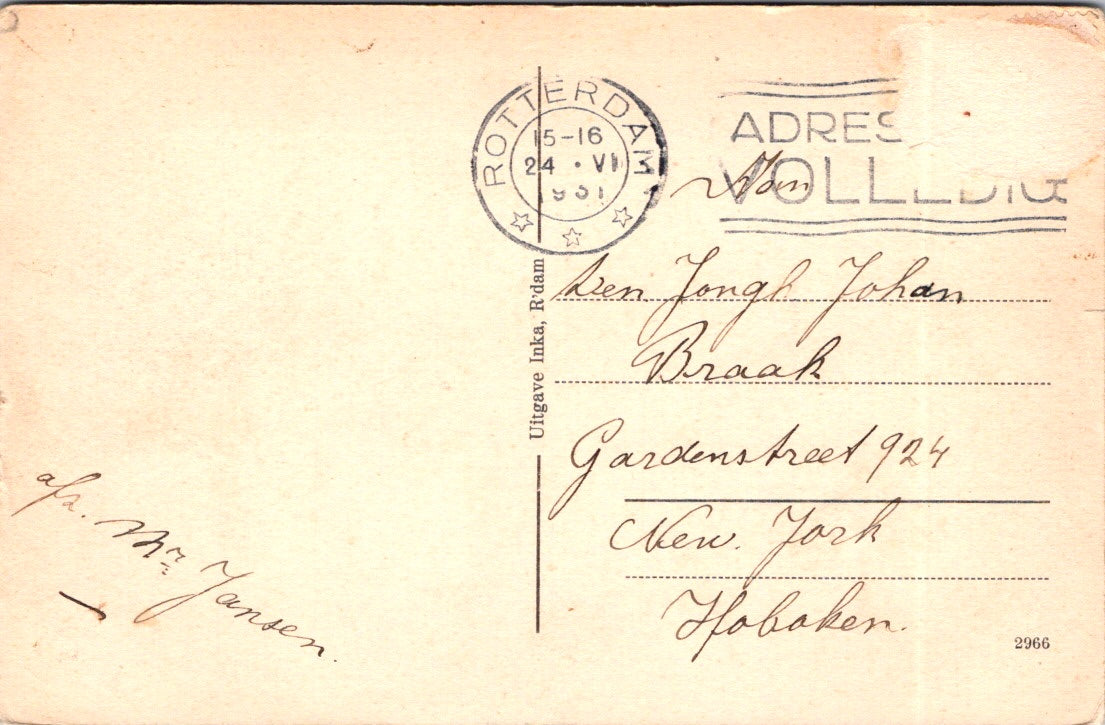 ROTTERDAM
15-16
24 · VI
1931
ADRES
VOLLEDIG
Aan
Den Jongh Johan
Braak
Gardenstreet 924
New. Jork
Hoboken.
Uitgave Inka, R'dam
afz. Mr Jansen.
2966